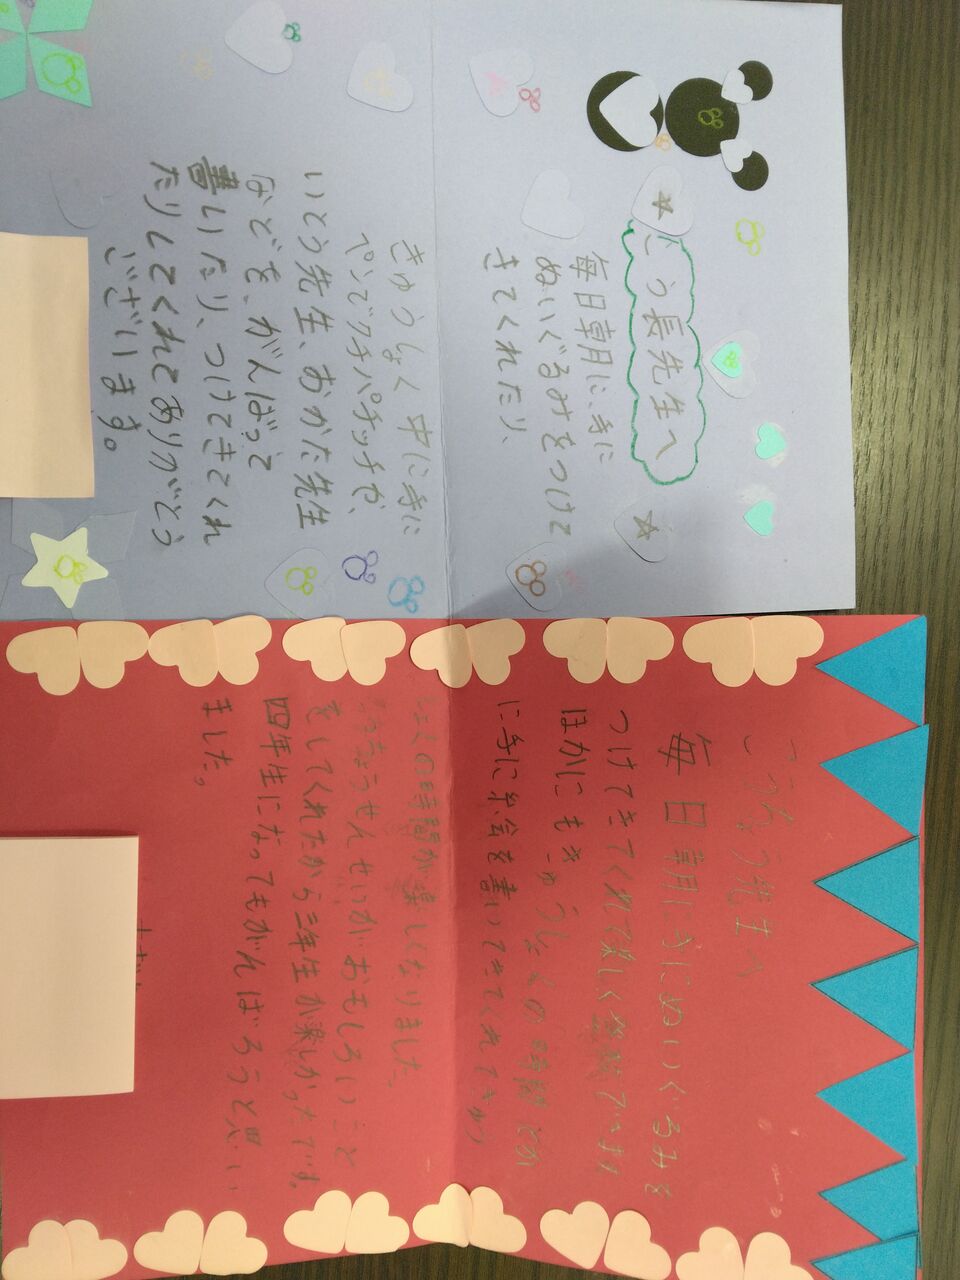 こう長先生へ
毎日朝に手に
ぬいぐるみをつけて
きてくれたり、
きゅうしょく中に手に
ペンでクチパッチや、
いとう先生、おかた先生
などを、がんばって
書いたり、つけてきてくれ
たりしてくれてありがとう
ございます。
こうちょう先生へ
毎日朝に手にぬいぐるみを
つけてきてくれて楽しく
ほかにもきゅうしょくの時間とか
に手に絵を書いてきてくれてきゅう
しょくの時間が楽しくなりました。
こうちょうせんせいがおもしろいこと
をしてくれたから三年生が楽しかったです。
四年生になってもがんばろうと思い
ました。